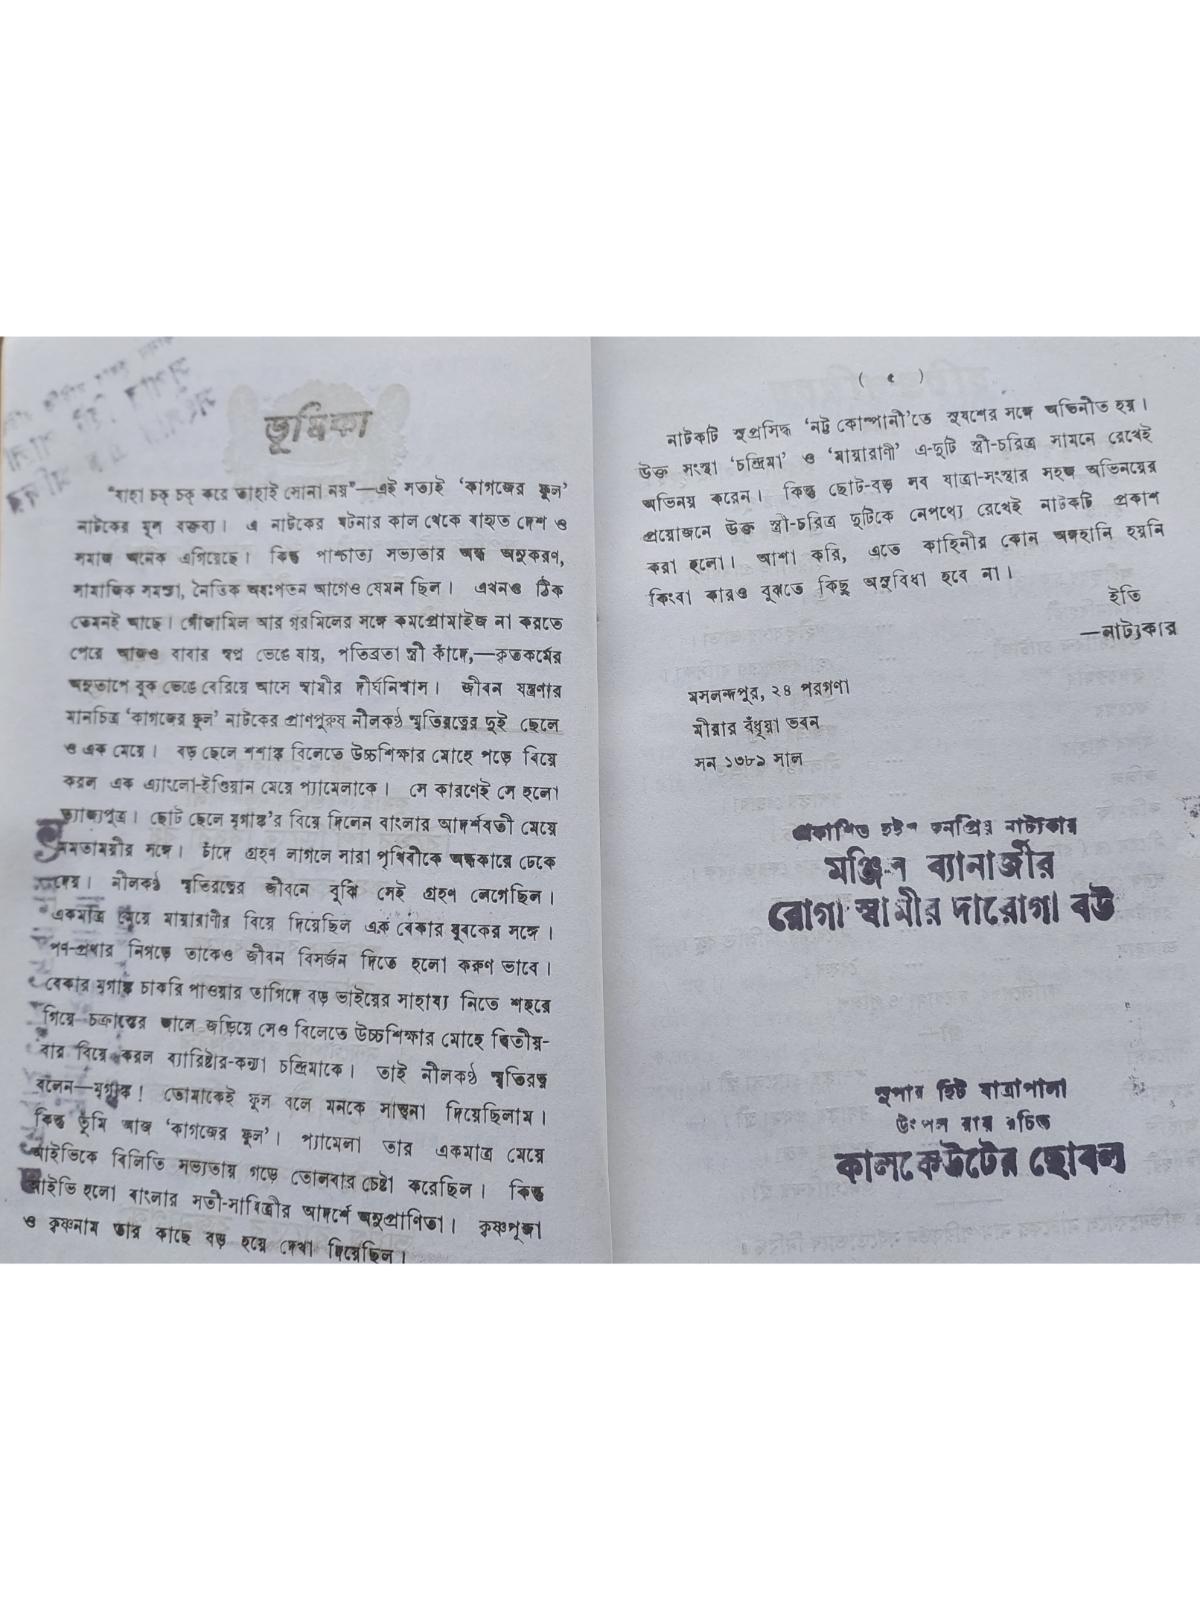 ভূমিকা
“যাহা চক্ চক্ করে তাহাই সোনা নয়”—এই সত্যই ‘কাগজের ফুল’
নাটকের মূল বক্তব্য। এ নাটকের ঘটনার কাল থেকে বাহ্যত দেশ ও
সমাজ অনেক এগিয়েছে। কিন্তু পাশ্চাত্য সভ্যতার অন্ধ অনুকরণ,
সামাজিক সমস্যা, নৈতিক অধঃপতন আগেও যেমন ছিল। এখনও ঠিক
তেমনই আছে। গোঁজামিল আর গরমিলের সঙ্গে কমপ্রোমাইজ না করতে
পেরে আজও বাবার স্বপ্ন ভেঙে যায়, পতিব্রতা স্ত্রী কাঁদে,—কৃতকর্মের
অনুতাপে বুক ভেঙে বেরিয়ে আসে স্বামীর দীর্ঘনিশ্বাস। জীবন যন্ত্রণার
মানচিত্র ‘কাগজের ফুল’ নাটকের প্রাণপুরুষ নীলকণ্ঠ স্মৃতিরত্নের দুই ছেলে
ও এক মেয়ে। বড় ছেলে শশাঙ্ক বিলেতে উচ্চশিক্ষার মোহে পড়ে বিয়ে
করল এক এ্যাংলো-ইণ্ডিয়ান মেয়ে প্যামেলাকে। সে কারণেই সে হলো
ত্যাজ্যপুত্র। ছোট ছেলে মৃগাঙ্ক’র বিয়ে দিলেন বাংলার আদর্শবতী মেয়ে
মমতাময়ীর সঙ্গে। চাঁদে গ্রহণ লাগলে সারা পৃথিবীকে অন্ধকারে ঢেকে
দেয়। নীলকণ্ঠ স্মৃতিরত্নের জীবনে বুঝি সেই গ্রহণ লেগেছিল।
একমাত্র মেয়ে মায়ারাণীর বিয়ে দিয়েছিল এক বেকার যুবকের সঙ্গে।
পণ-প্রথার নিগড়ে তাকেও জীবন বিসর্জন দিতে হলো করুণ ভাবে।
বেকার মৃগাঙ্ক চাকরি পাওয়ার তাগিদে বড় ভাইয়ের সাহায্য নিতে শহরে
গিয়ে চক্রান্তের জালে জড়িয়ে সেও বিলেতে উচ্চশিক্ষার মোহে দ্বিতীয়-
বার বিয়ে করল ব্যারিষ্টার-কন্যা চন্দ্রিমাকে। তাই নীলকণ্ঠ স্মৃতিরত্ন
বলেন—মৃগাঙ্ক! তোমাকেই ফুল বলে মনকে সান্ত্বনা দিয়েছিলাম।
কিন্তু তুমি আজ ‘কাগজের ফুল’। প্যামেলা তার একমাত্র মেয়ে
আইভিকে বিলিতি সভ্যতায় গড়ে তোলবার চেষ্টা করেছিল। কিন্তু
আইভি হলো বাংলার সতী-সাবিত্রীর আদর্শে অনুপ্রাণিতা। কৃষ্ণপূজা
ও কৃষ্ণনাম তার কাছে বড় হয়ে দেখা দিয়েছিল।
( ৫ )
নাটকটি সুপ্রসিদ্ধ ‘নট্ট কোম্পানী’তে সুযশের সঙ্গে অভিনীত হয়।
উক্ত সংস্থা ‘চন্দ্রিমা’ ও ‘মায়ারাণী’ এ-দুটি স্ত্রী-চরিত্র সামনে রেখেই
অভিনয় করেন। কিন্তু ছোট-বড় সব যাত্রা-সংস্থার সহজ অভিনয়ের
প্রয়োজনে উক্ত স্ত্রী-চরিত্র দুটিকে নেপথ্যে রেখেই নাটকটি প্রকাশ
করা হলো। আশা করি, এতে কাহিনীর কোন অঙ্গহানি হয়নি
কিংবা কারও বুঝতে কিছু অসুবিধা হবে না।
ইতি
—নাট্যকার
মসলন্দপুর, ২৪ পরগণা
মীরার বঁধুয়া ভবন
সন ১৩৮৯ সাল
প্রকাশিত হইল জনপ্রিয় নাট্যকার
মঞ্জিল ব্যানার্জীর
রোগা স্বামীর দারোগা বউ
সুপার হিট যাত্রাপালা
উৎপল রায় রচিত
কালকেউটের ছোবল